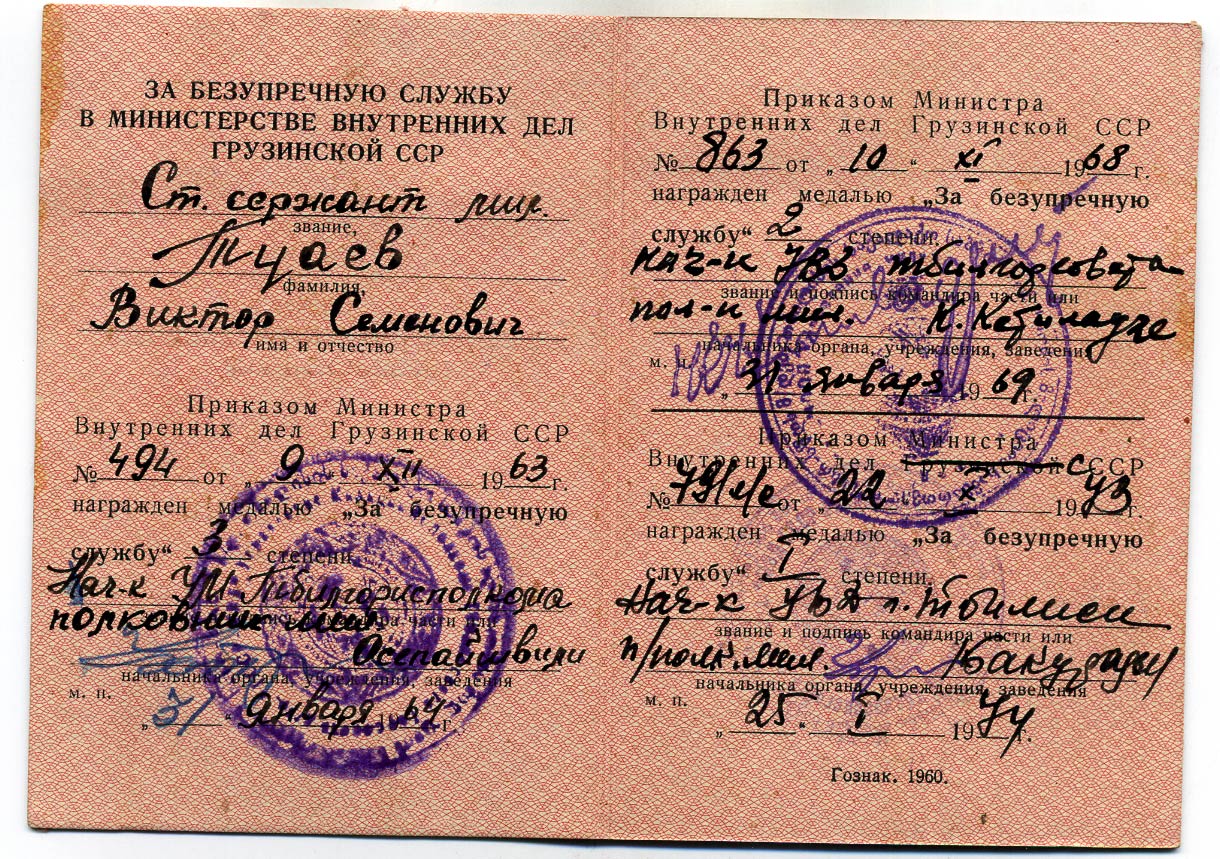 ЗА БЕЗУПРЕЧНУЮ СЛУЖБУ
В МИНИСТЕРСТВЕ ВНУТРЕННИХ ДЕЛ
ГРУЗИНСКОЙ ССР
Ст. сержант мил.
звание,
Туаев
фамилия,
Виктор Семенович
имя и отчество
Приказом Министра
Внутренних дел Грузинской ССР
№ 494 от „ 9 “ XII 1963 г.
награжден медалью „За безупречную
службу“ 3 степени.
Нач-к УМ Тбилгорисполкома
звание и подпись командира части или
полковник мил.
Осепайшвили
начальника органа, учреждения, заведения
м. п.
„31“ января 64 г.
Приказом Министра
Внутренних дел Грузинской ССР
№ 863 от „ 10 “ XI 1968 г.
награжден медалью „За безупречную
службу“ 2 степени.
Нач-к УВД
звание и подпись командира части или
пол-к мил. К.
начальника органа, учреждения, заведения
м. п.
„31 января 1969 г.
Приказом Министра
Внутренних дел Грузинской СССР
№ от „ 22 X 1973 г.
награжден медалью „За безупречную
службу“ I степени.
Нач-к УВД г. Тбилиси
звание и подпись командира части или
п/полк. мил.
начальника органа, учреждения, заведения
м. п.
„ 25 “ I 1974 г.
Гознак. 1960.